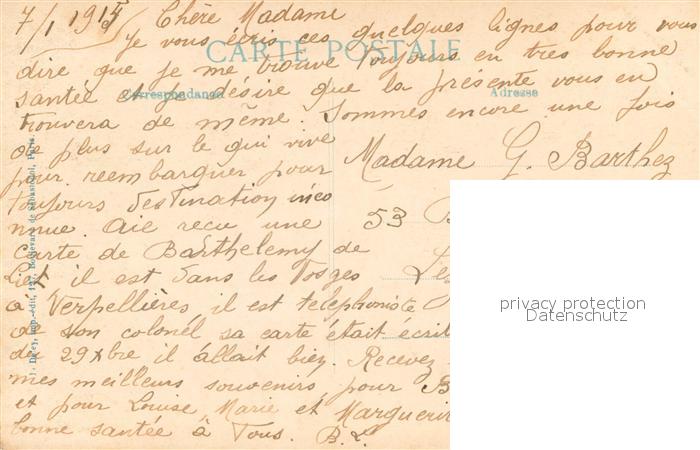 7/1 1915 Chère Madame
Je vous écris ces quelques lignes pour vous
CARTE POSTALE
dire que je me trouve toujours en tres bonne
santée et je désire que la présente vous en
Correspondance
Adresse
trouvera de même. Sommes encore une fois
de plus sur le qui vive
pour reembarquer pour
toujours destination inco
nnue. Aie recu une
carte de Barthelemy de
il est dans les Vosges
à Verpellières, il est telephoniste
de son colonél sa carte était écrit
du 29xbre il allait bien. Recevez
mes meilleurs souvenirs pour B
et pour Louise, Marie et Marguerit
bonne santée à Tous. B.L.
Madame G. Barthez
53 B
Le
privacy protection
Datenschutz
imp.-édit, Boulevard de Sébastopol, Paris